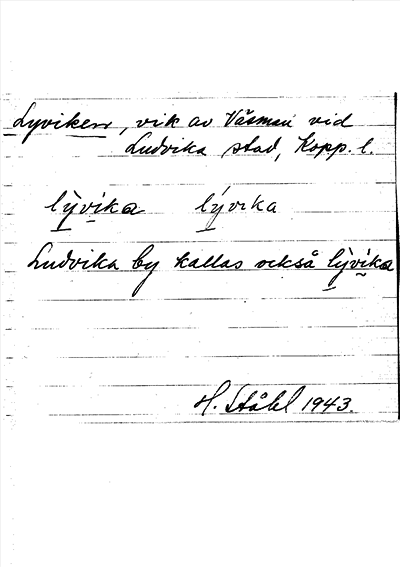 Lyviken, vik av Väsman vid
Ludvika stad, Kopp. l.
lỳvika lývika
Ludvika by kallas också lỳvika
H. Ståhl 1943.